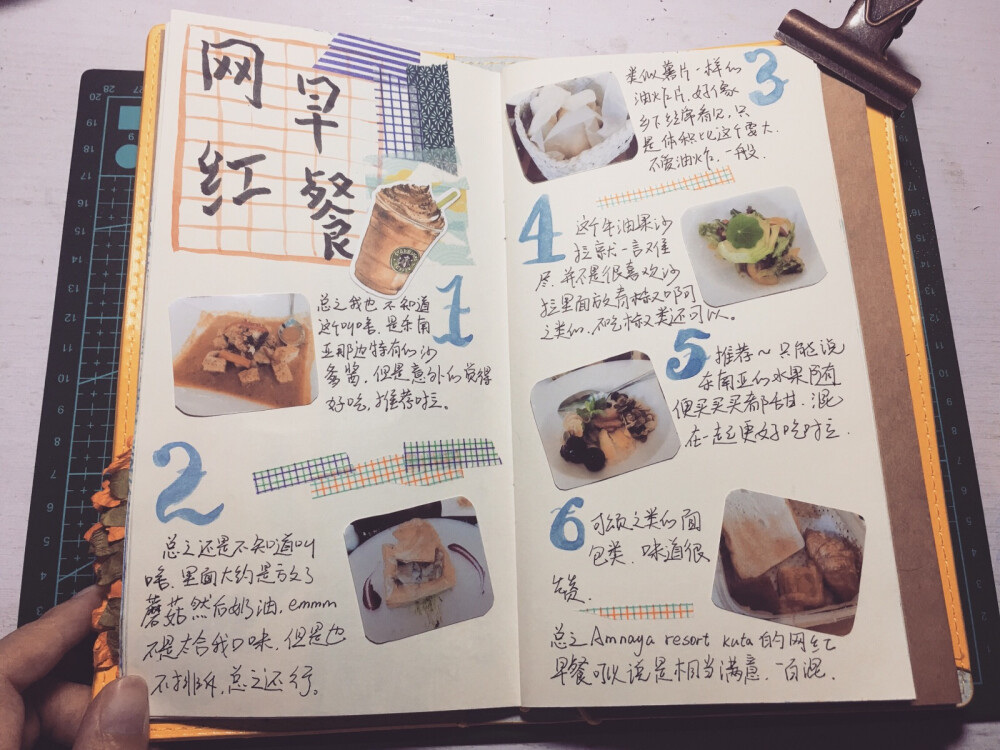 网红
早餐
1
总之我也不知道
这个叫啥,是东南
亚那边特有的沙
爹酱,但是意外的觉得
好吃,推荐哒。
2
总之还是不知道叫
啥,里面大约是放了
蘑菇然后奶油,emmm
不是太合我口味,但是也
不排斥,总之还行。
3
类似薯片一样的
油炸片,好像
乡下经常看见,只
是体积比这个要大.
不爱油炸,一般.
4
这个牛油果沙
拉就一言难
尽,并不是很喜欢沙
拉里面放青椒又啊
之类的,不吃椒类还可以。
5
推荐~只能说
东南亚的水果随
便买买买都甜,混
在一起更好吃哒.
6
可颂之类的面
包类,味道很
赞.
总之Amnaya resort kuta的网红
早餐可以说是相当满意,